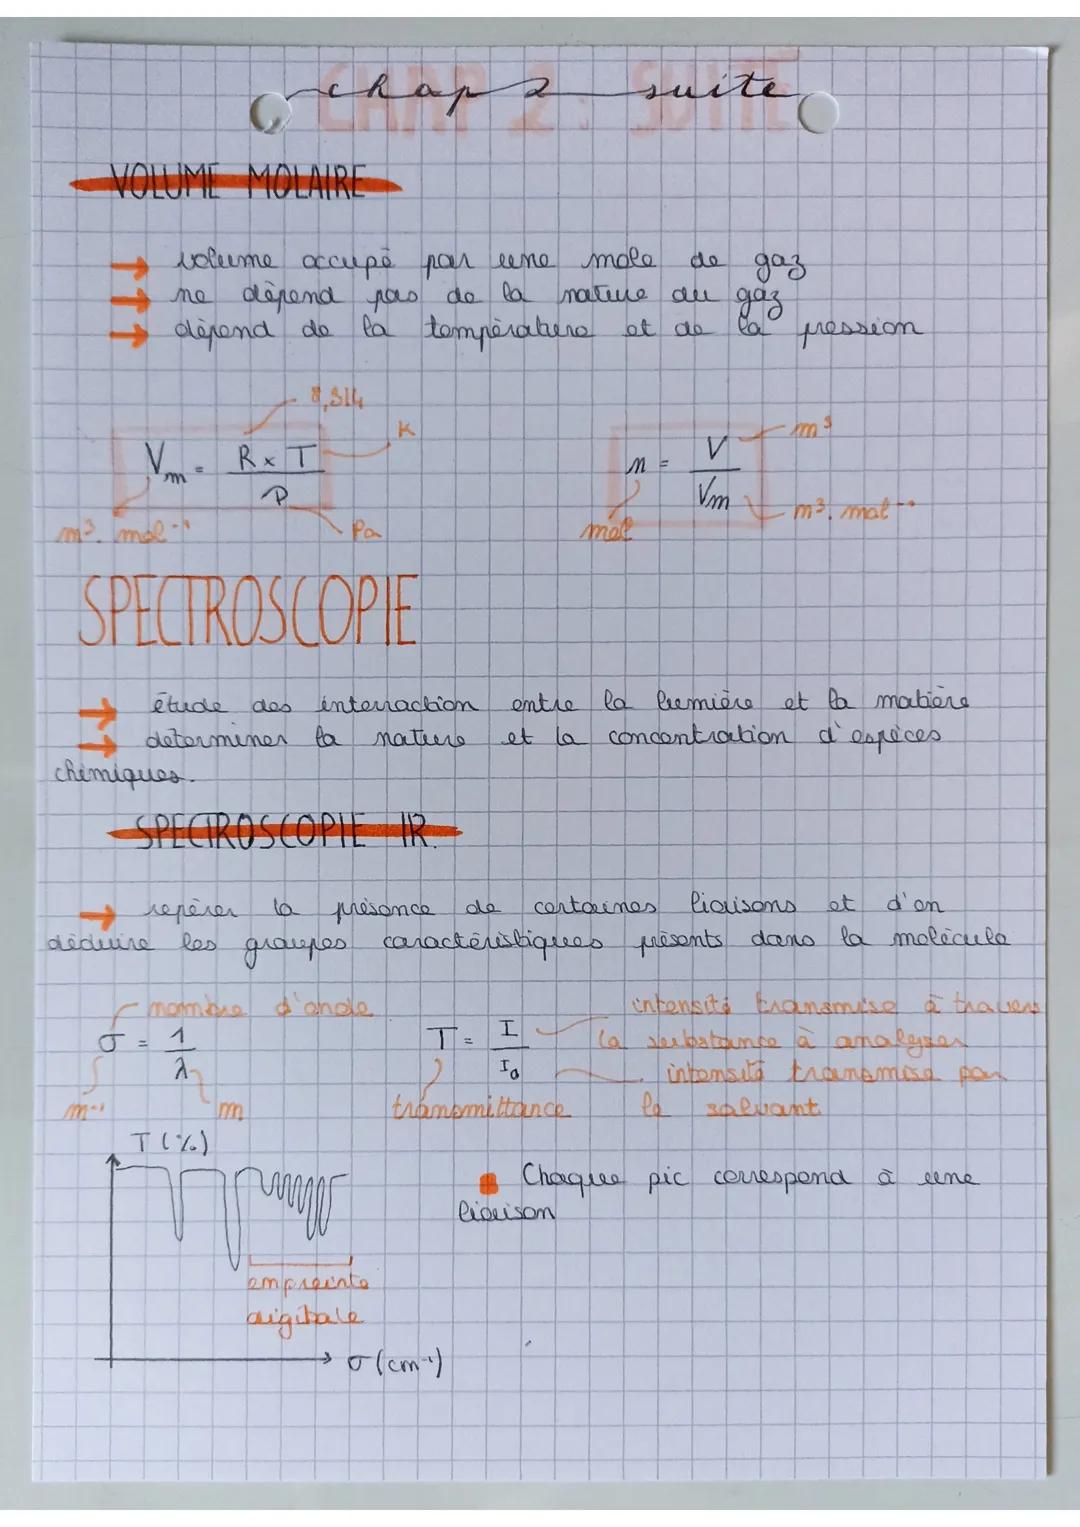 CHAP 2 : SUITE
chap 2 suite
VOLUME MOLAIRE
→ volume occupé par une mole de gaz
→ ne dépend pas de la nature du gaz
→ dépend de la température et de la pression
8,314
K
Vm = R x T / P
m³. mol⁻¹
Pa
n = V / Vm
m³
m³. mol⁻¹
mol
SPECTROSCOPIE
→ étude des interraction entre la lumière et la matière
→ déterminer la nature et la concentration d'espèces
chimiques.
SPECTROSCOPIE IR
→ repérer la présence de certaines liaisons et d'en
déduire les groupes caractéristiques présents dans la molécule
nombre d'onde
σ = 1 / λ
m⁻¹
m
T = I / I₀
transmittance
intensité transmise à travers
la substance à analyser
intensité transmise par
le solvant
T (%)
Chaque pic correspond à une
liaison
empreinte
digitale
σ (cm⁻¹)